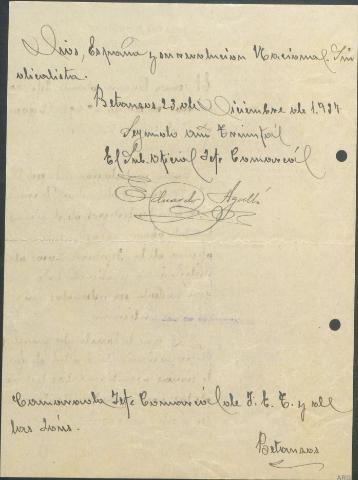 Dios, España y su revolucion Nacional-Sin
dicalista.
Betanzos, 23, de Diciembre de 1.937
Segundo año Triunfal
El Sub. Oficial Jefe Comarcal
Eduardo Agulló
Comandante Jefe Comarcal de F. E. T. y de
las Jons.
Betanzos